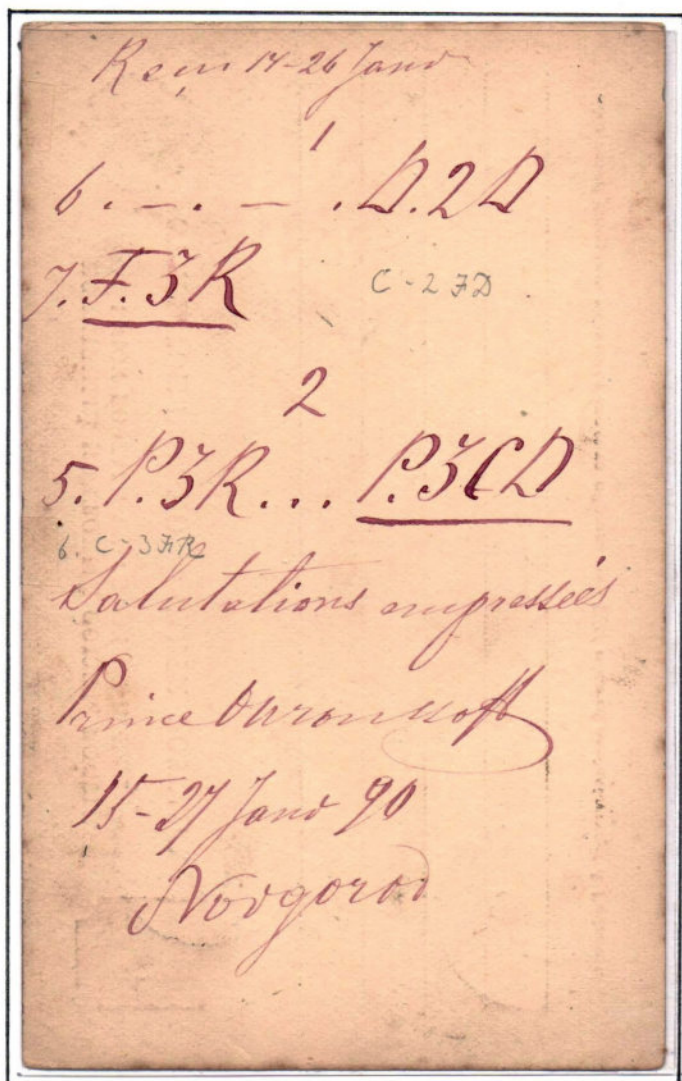 Reçu 14-26 Janv
1
6. – . – . D.2D
7. F.3R C-2FD
2
5. P.3R... P.3CD
6. C-3FR
Salutations empressées
Prince
15-27 Janv 90
Novgorod